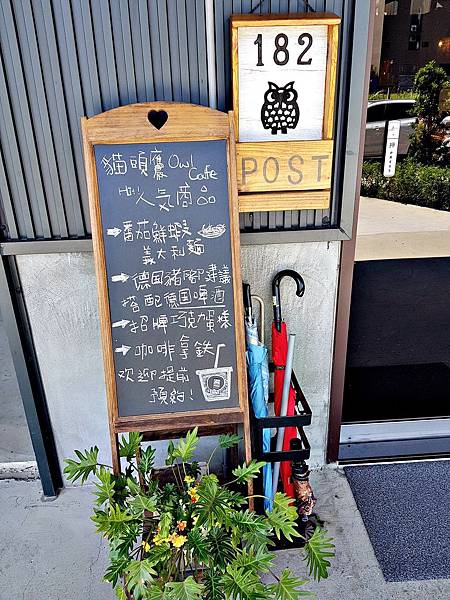 182
POST
貓頭鷹 Owl Cafe
人気商品
番茄鮮蝦
義大利麵
德国豬腳建議
搭配德国啤酒
招牌巧克力蛋糕
咖啡拿鉄
欢迎提前
預約!